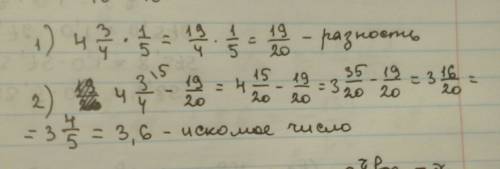 1) 4 3/4 · 1/5 = 19/4 · 1/5 = 19/20 - разность
2) 4 3/4 ^15 - 19/20 = 4 15/20 - 19/20 = 3 35/20 - 19/20 = 3 16/20 =
= 3 4/5 = 3,6 - искомое число